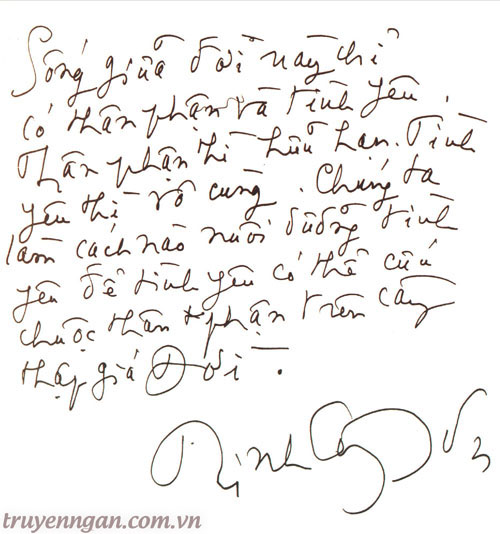 Sống giữa đời này chỉ
có thân phận và tình yêu.
Thân phận thì hữu hạn. Tình
yêu thì vô cùng. Chúng ta
làm cách nào nuôi dưỡng tình
yêu để tình yêu có thể cứu
chuộc thân phận trên cây
thập giá Đời.
Trịnh Công Sơn
truyenngan.com.vn